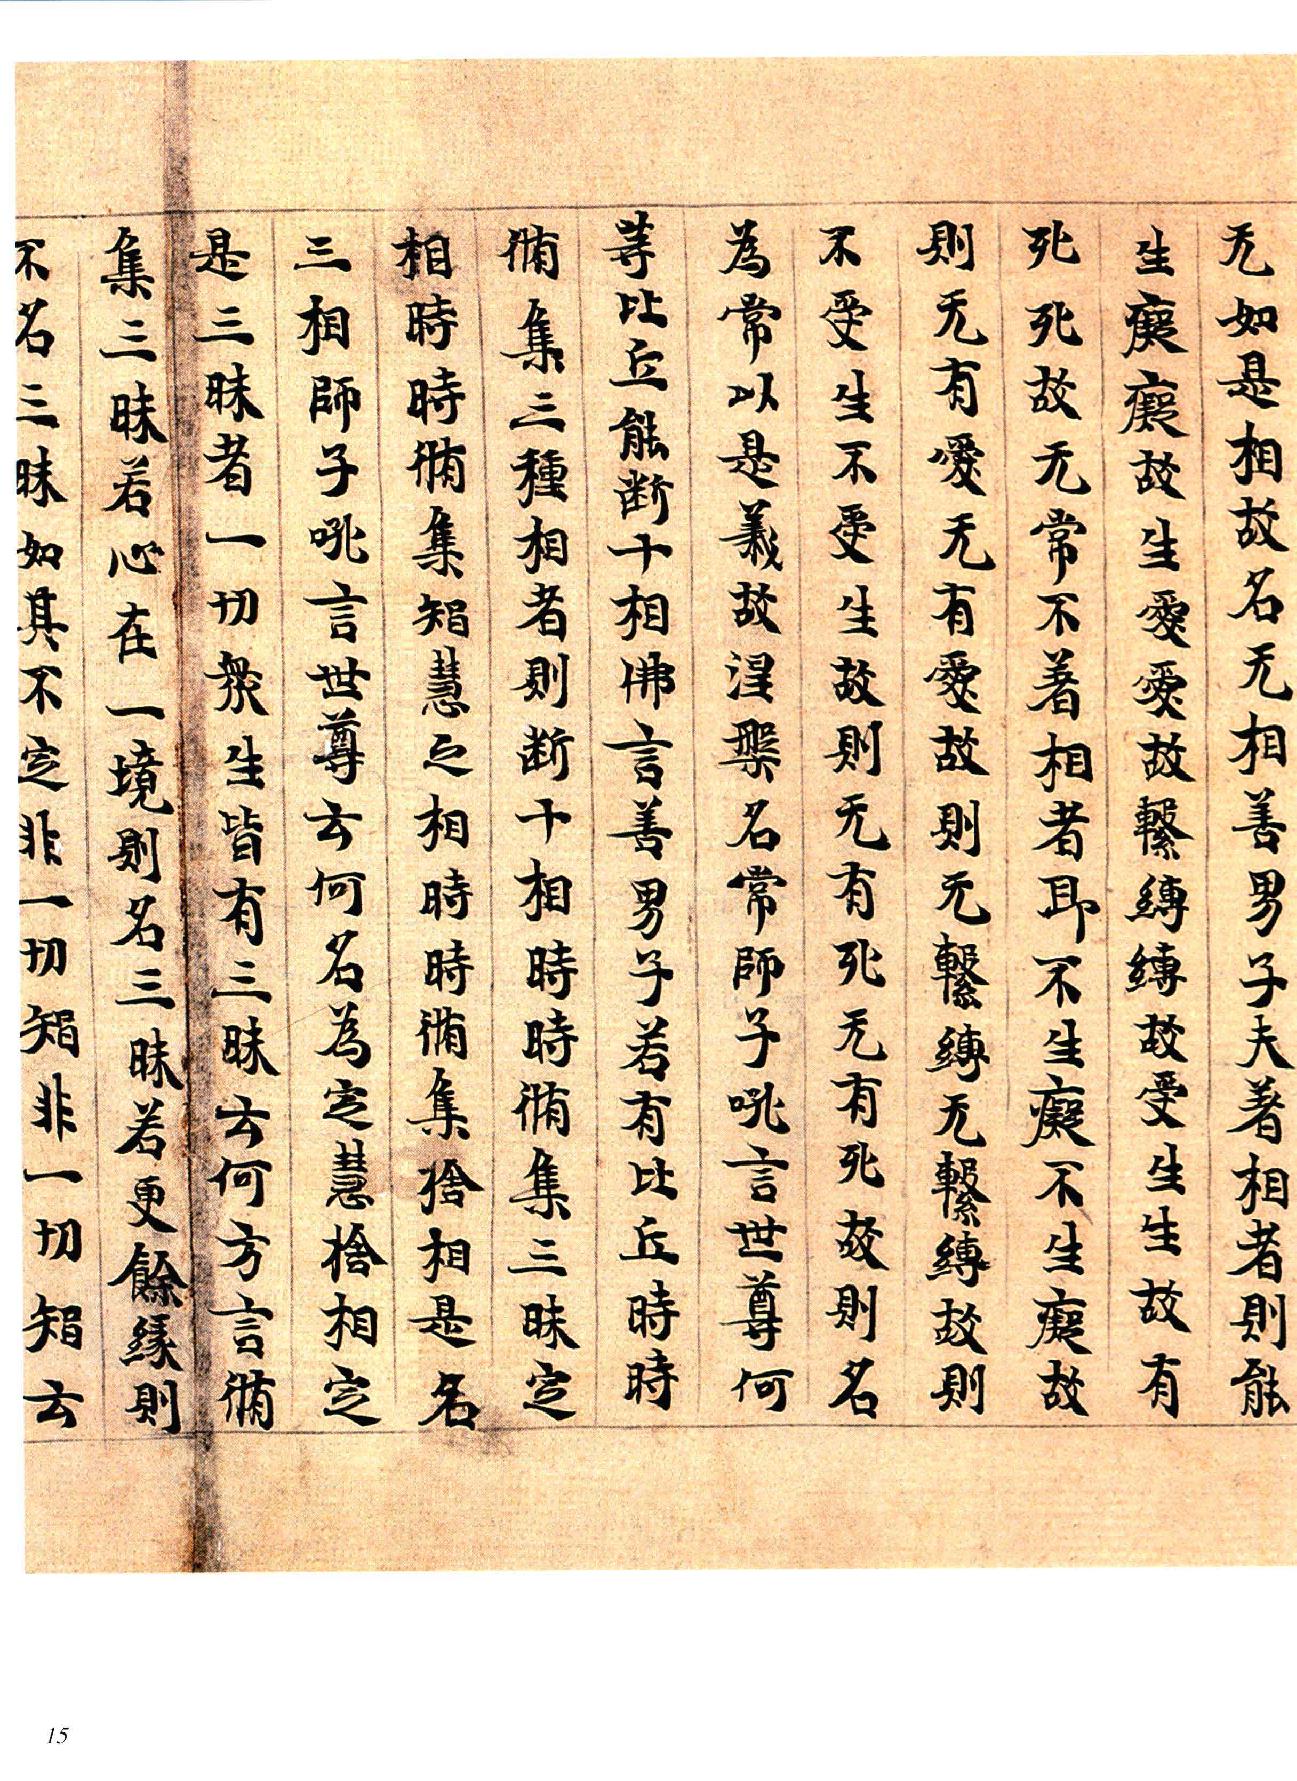 无如是相故名无相善男子夫著相者則能
生癡癡故生愛愛故繫縛縛故受生生故有
死死故无常不著相者耶不生癡不生癡故
則无有愛无有愛故則无繫縛无繫縛故則
不受生不受生故則无有死无有死故則名
為常以是義故涅槃名常師子吼言世尊何
等比丘能断十相佛言善男子若有比丘時時
脩集三種相者則断十相時時脩集三昧定
相時時脩集智慧之相時時脩集捨相是名
三相師子吼言世尊云何名為定慧捨相定
是三昧者一切衆生皆有三昧云何方言脩
集三昧若心在一境則名三昧若更餘緣則
不名三昧如其不定非一切智非一切智云
15